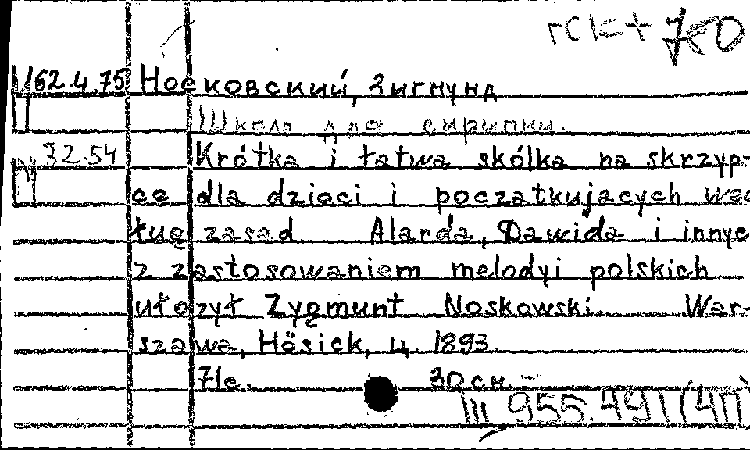 62.4.75 Носковский, Зигмунд
Школа для скрипки.
32.54 Krótka i łatwa skólka na skrzyp-
ce dla dzieci i poczatkujacych wed
ług zasad Alarda, Dawida i innyc
z zastosowaniem melodyi polskich
ułożył Zygmunt Noskowski. War-
szawa, Hösick, 4. 1893.
71c. 30см.
III 955.491 (40)